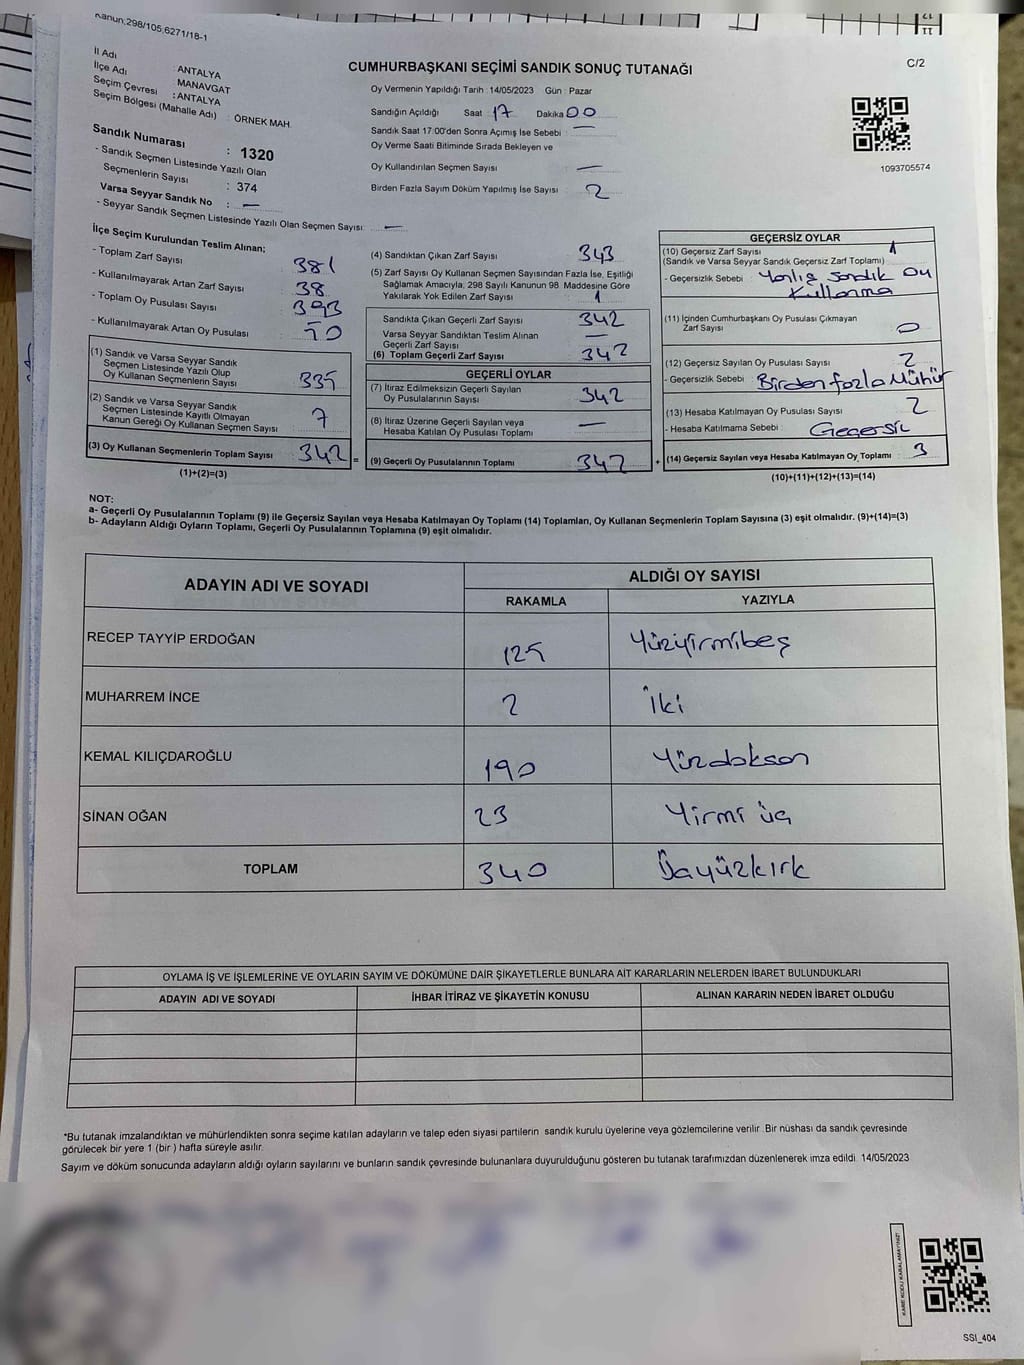 Kanun:298/105,6271/18-1
C/2
CUMHURBAŞKANI SEÇİMİ SANDIK SONUÇ TUTANAĞI
İl Adı : ANTALYA
İlçe Adı : MANAVGAT
Seçim Çevresi : ANTALYA
Seçim Bölgesi (Mahalle Adı) : ÖRNEK MAH.
Sandık Numarası : 1320
- Sandık Seçmen Listesinde Yazılı Olan
Seçmenlerin Sayısı : 374
Varsa Seyyar Sandık No : —
- Seyyar Sandık Seçmen Listesinde Yazılı Olan Seçmen Sayısı: —
Oy Vermenin Yapıldığı Tarih :14/05/2023 Gün : Pazar
Sandığın Açıldığı Saat 17 Dakika 00
Sandık Saat 17:00'den Sonra Açımış İse Sebebi : —
Oy Verme Saati Bitiminde Sırada Bekleyen ve
Oy Kullandırılan Seçmen Sayısı —
Birden Fazla Sayım Döküm Yapılmış İse Sayısı : 2
1093705574
İlçe Seçim Kurulundan Teslim Alınan;
- Toplam Zarf Sayısı 381
- Kullanılmayarak Artan Zarf Sayısı 38
- Toplam Oy Pusulası Sayısı 393
- Kullanılmayarak Artan Oy Pusulası 50
(1) Sandık ve Varsa Seyyar Sandık
Seçmen Listesinde Yazılı Olup
Oy Kullanan Seçmenlerin Sayısı 335
(2) Sandık ve Varsa Seyyar Sandık
Seçmen Listesinde Kayıtlı Olmayan
Kanun Gereği Oy Kullanan Seçmen Sayısı 7
(3) Oy Kullanan Seçmenlerin Toplam Sayısı 342 =
(1)+(2)=(3)
(4) Sandıktan Çıkan Zarf Sayısı 343
(5) Zarf Sayısı Oy Kullanan Seçmen Sayısından Fazla İse, Eşitliği
Sağlamak Amacıyla, 298 Sayılı Kanunun 98. Maddesine Göre
Yakılarak Yok Edilen Zarf Sayısı : 1
Sandıkta Çıkan Geçerli Zarf Sayısı 342
Varsa Seyyar Sandıktan Teslim Alınan
Geçerli Zarf Sayısı —
(6) Toplam Geçerli Zarf Sayısı 342
GEÇERLİ OYLAR
(7) İtiraz Edilmeksizin Geçerli Sayılan
Oy Pusulalarının Sayısı 342
(8) İtiraz Üzerine Geçerli Sayılan veya
Hesaba Katılan Oy Pusulası Toplamı —
(9) Geçerli Oy Pusulalarının Toplamı 342 +
GEÇERSİZ OYLAR
(10) Geçersiz Zarf Sayısı 1
(Sandık ve Varsa Seyyar Sandık Geçersiz Zarf Toplamı)
- Geçersizlik Sebebi : Yanlış sandık oy
kullanma
(11) İçinden Cumhurbaşkanı Oy Pusulası Çıkmayan
Zarf Sayısı 0
(12) Geçersiz Sayılan Oy Pusulası Sayısı 2
- Geçersizlik Sebebi : Birden fazla Mühür
(13) Hesaba Katılmayan Oy Pusulası Sayısı 2
- Hesaba Katılmama Sebebi : Geçersiz
(14) Geçersiz Sayılan veya Hesaba Katılmayan Oy Toplamı : 3
(10)+(11)+(12)+(13)=(14)
NOT:
a- Geçerli Oy Pusulalarının Toplamı (9) ile Geçersiz Sayılan veya Hesaba Katılmayan Oy Toplamı (14) Toplamları, Oy Kullanan Seçmenlerin Toplam Sayısına (3) eşit olmalıdır. (9)+(14)=(3)
b- Adayların Aldığı Oyların Toplamı, Geçerli Oy Pusulalarının Toplamına (9) eşit olmalıdır.
ADAYIN ADI VE SOYADI
ALDIĞI OY SAYISI
RAKAMLA YAZIYLA
RECEP TAYYİP ERDOĞAN 125 Yüzyirmibeş
MUHARREM İNCE 2 İki
KEMAL KILIÇDAROĞLU 190 Yüzdoksan
SİNAN OĞAN 23 Yirmi üç
TOPLAM 340 Üçyüzkırk
OYLAMA İŞ VE İŞLEMLERİNE VE OYLARIN SAYIM VE DÖKÜMÜNE DAİR ŞİKAYETLERLE BUNLARA AİT KARARLARIN NELERDEN İBARET BULUNDUKLARI
ADAYIN ADI VE SOYADI İHBAR İTİRAZ VE ŞİKAYETİN KONUSU ALINAN KARARIN NEDEN İBARET OLDUĞU
*Bu tutanak imzalandıktan ve mühürlendikten sonra seçime katılan adayların ve talep eden siyasi partilerin sandık kurulu üyelerine veya gözlemcilerine verilir. Bir nüshası da sandık çevresinde
görülecek bir yere 1 (bir ) hafta süreyle asılır.
Sayım ve döküm sonucunda adayların aldığı oyların sayılarını ve bunların sandık çevresinde bulunanlara duyurulduğunu gösteren bu tutanak tarafımızdan düzenlenerek imza edildi. 14/05/2023
KARE KODU KARALAMAYINIZ!
SSI_404